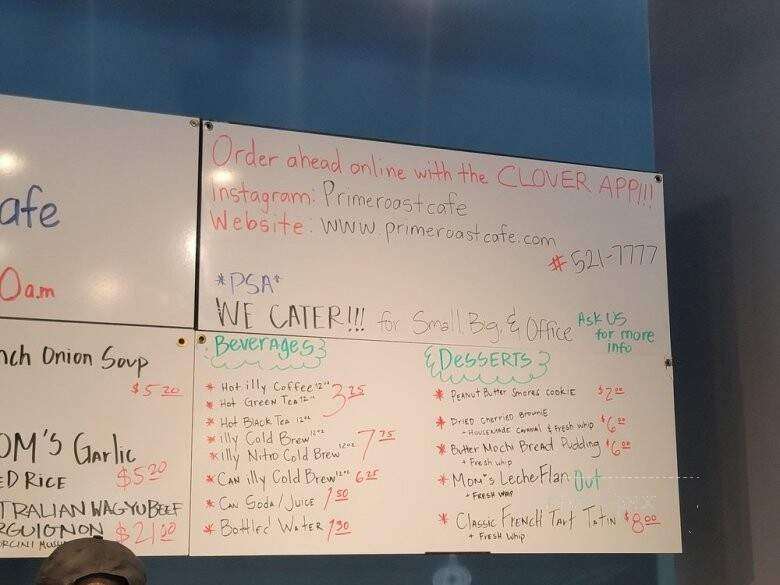 afe
0am
Order ahead online with the CLOVER APP!!!
Instagram: Primeroastcafe
Website: www.primeroastcafe.com
# 521-7777
*PSA*
WE CATER!!! for Small, Big, & Office
Ask US for more info
nch Onion Soup
$5.20
OM'S Garlic
ED RICE $5.20
TRALIAN WAGYU BEEF
RGUIGNON $21.00
RCINI
Beverages
* Hot illy Coffee 12oz
* Hot Green Tea 12oz 3.25
* Hot Black Tea 12oz
* illy Cold Brew 12oz
* illy Nitro Cold Brew 12oz 7.75
* CAN illy Cold Brew 6.25
* Can Soda/Juice 1.50
* Bottled Water 1.30
DESSERTS
* Peanut Butter Smores Cookie $2.00
* Dried Cherried Brownie
+ Housemade Caramel & Fresh whip $6.00
* Butter Mochi Bread Pudding $6.00
+ Fresh whip
* Mom's Leche Flan Out
+ Fresh whip
* Classic French Tart Tatin $8.00
+ Fresh whip